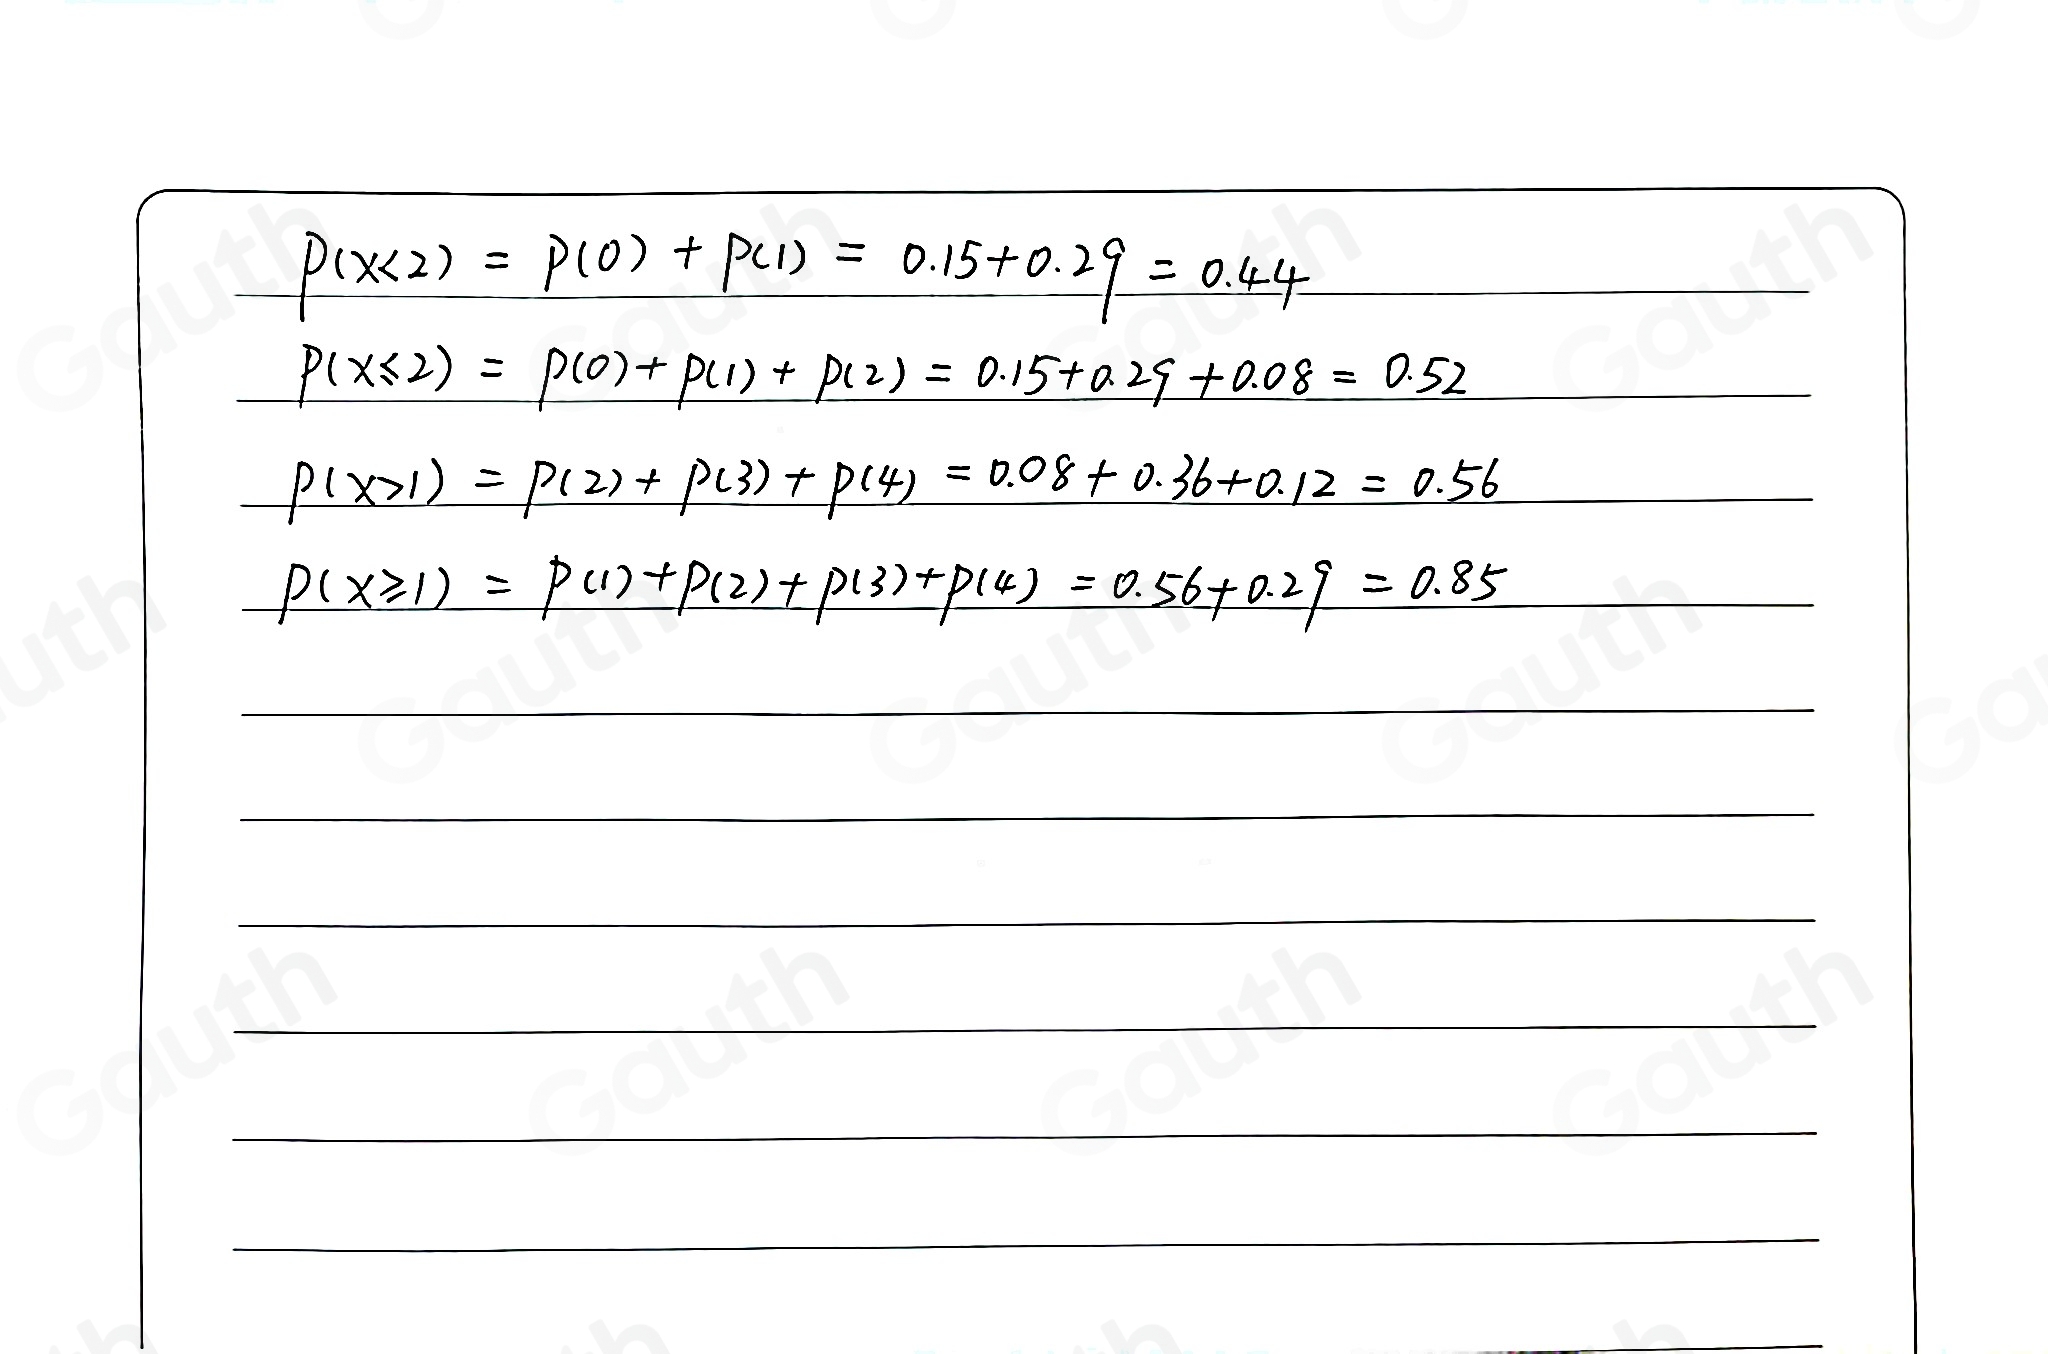 P(X<2) = P(0) + P(1) = 0.15+0.29 = 0.44
P(X≤2) = P(0)+P(1)+P(2) = 0.15+0.29+0.08 = 0.52
P(X>1) = P(2)+P(3)+P(4) = 0.08+0.36+0.12 = 0.56
P(X≥1) = P(1)+P(2)+P(3)+P(4) = 0.56+0.29 = 0.85
Gauth